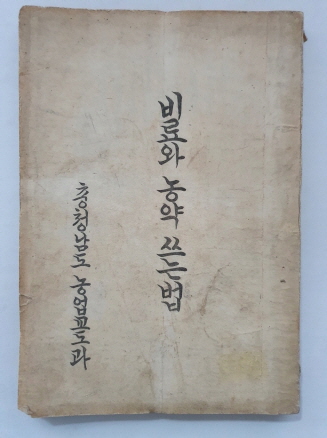 비료와 농약 쓰는법
충청남도 농업교도과